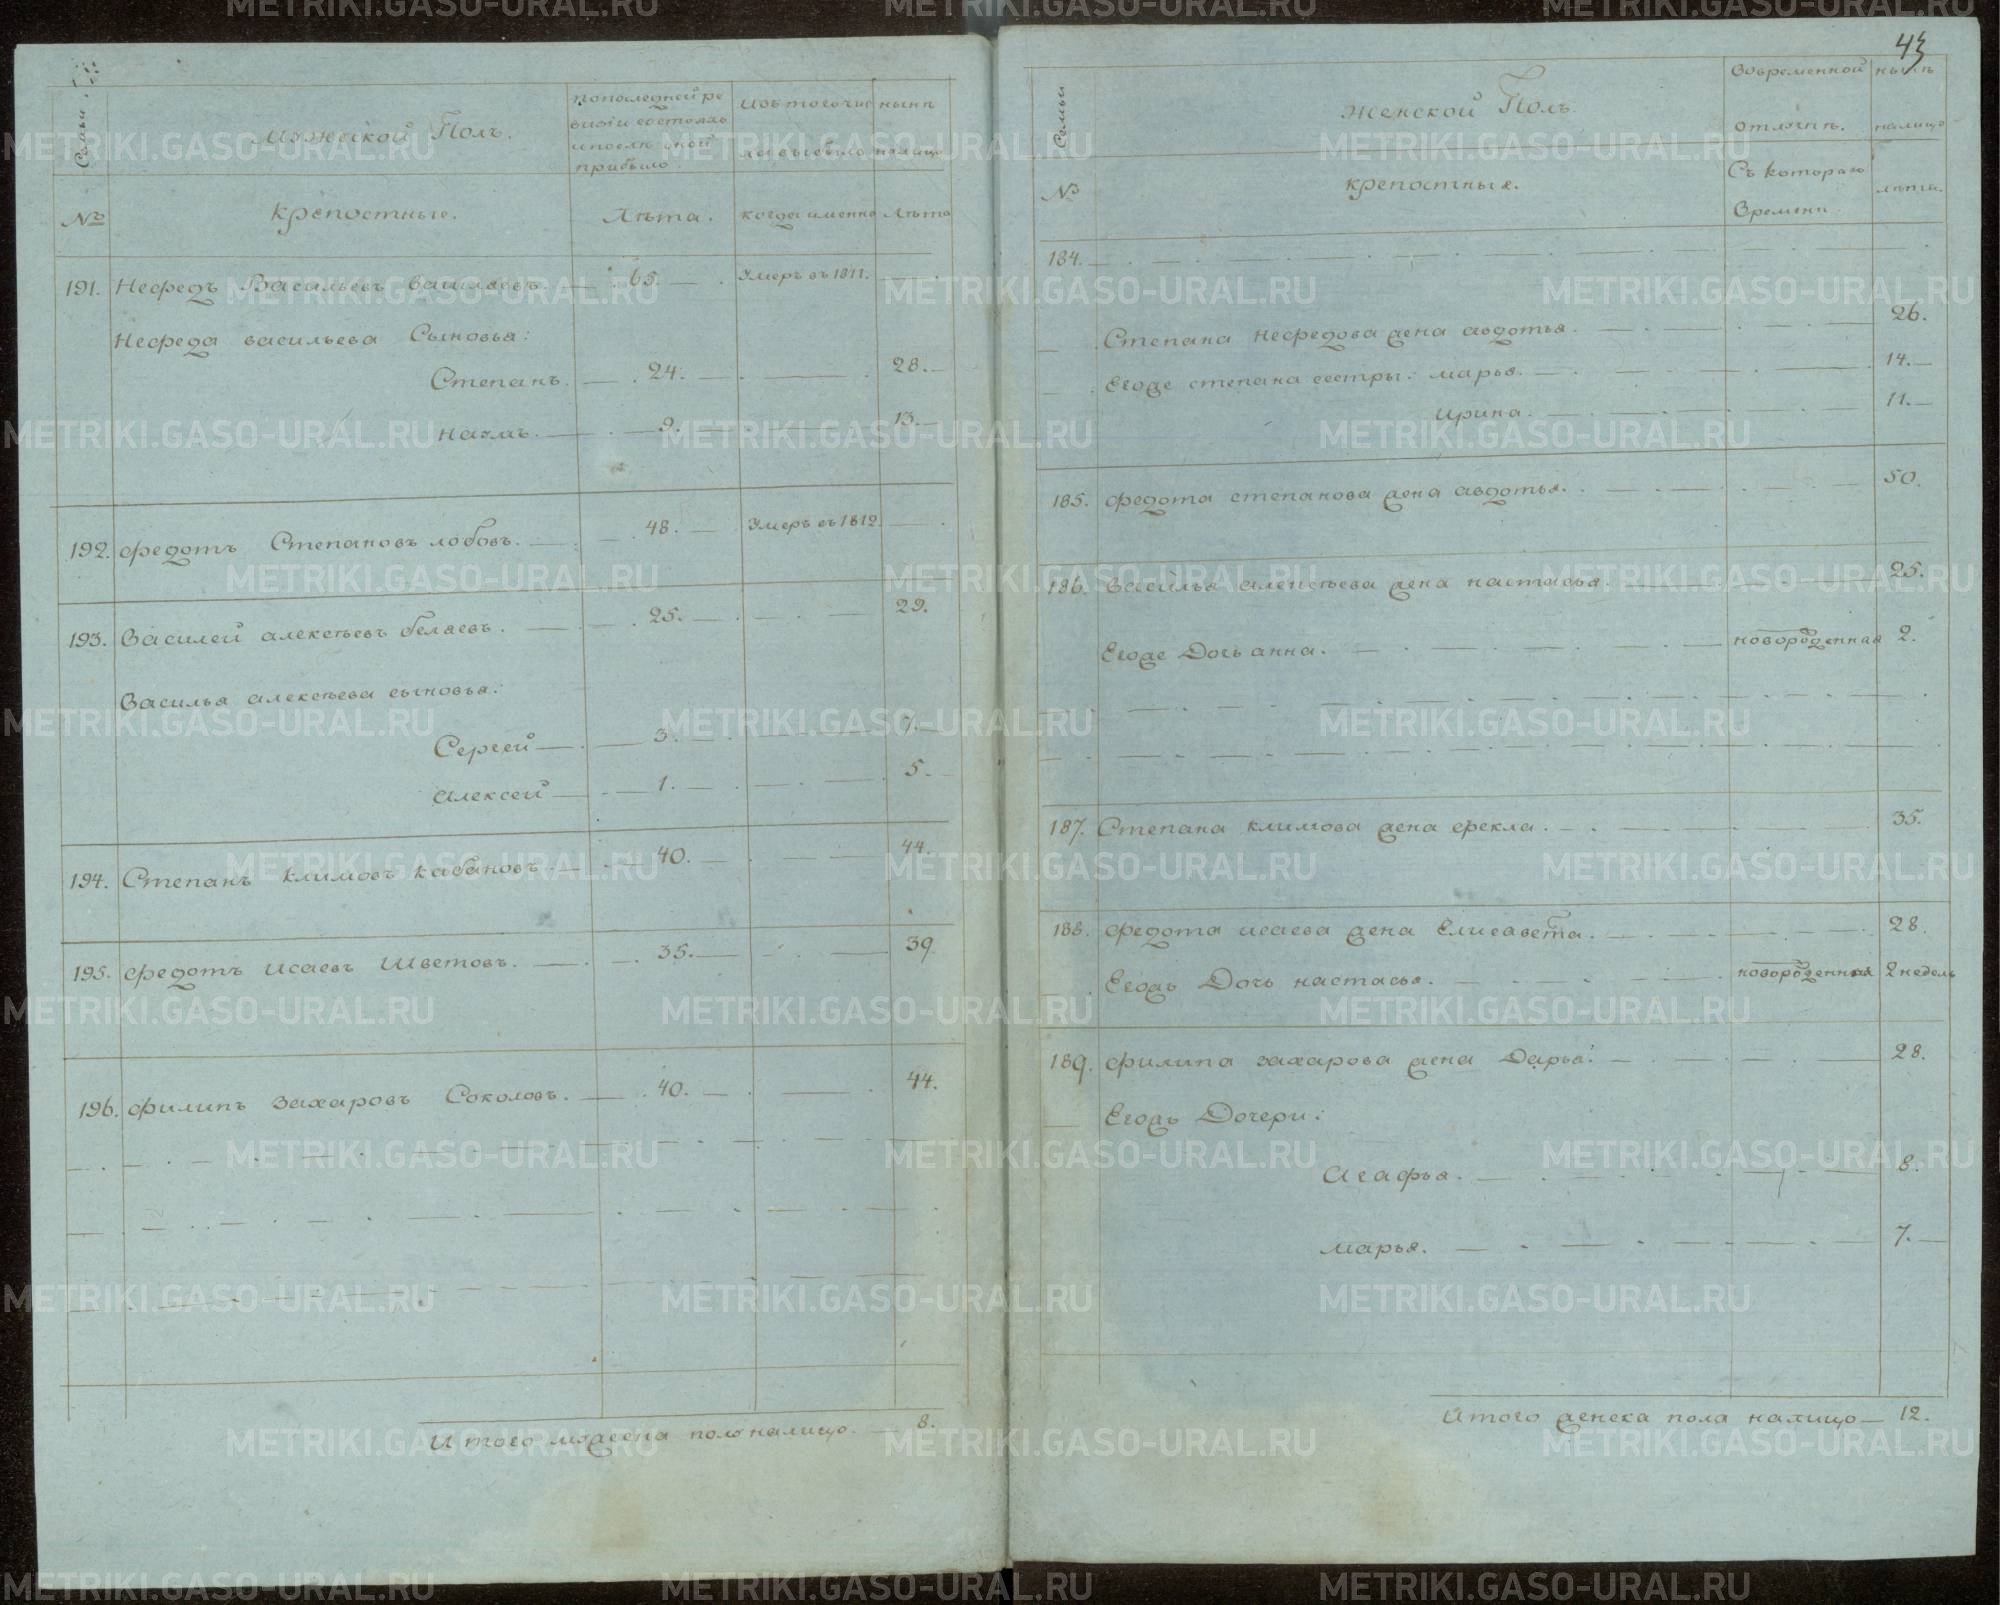 43
Семьи
Мужеской Полъ.
По последней ре
визіи состояло
и после оной
прибыло.
Изъ того чис
ла выбыло
ныне
налицо
№
Крепостные.
Лѣта.
когда именно
Лѣта
191. Нефедъ Васильевъ 65. Умеръ въ 1811.
Нефеда васильева Сыновья:
Степанъ. 24. 28.
Наумъ. 9. 13.
192. Федотъ Степановъ лобовъ. 48. Умеръ въ 1812.
193. Василей алексѣевъ беляевъ. 25. 29.
Василья алексѣева сыновья:
Сергей 3. 7.
Алексей 1. 5.
194. Степанъ климовъ кабановъ. 40. 44.
195. Федотъ Исаевъ Шветовъ. 35. 39.
196. Филипъ Захаровъ Соколовъ. 40. 44.
Итого мужеска пола налицо. 8.
Семьи
Женской Полъ.
Во временной
отлучкѣ.
нынѣ
налицо
№
крепостные.
Съ котораго
Времени.
лѣта.
184.
Степана нефедова жена авдотья. 26.
Егоже степана сестры: марья. 14.
Ирина. 11.
185. Федота степанова жена авдотья. 50.
186. Василья алексѣева жена настасья. 25.
Егоже Дочь анна. новорожденная 2.
187. Степана климова жена фекла. 35.
188. Федота исаева жена Елисавета. 28.
Егожъ Дочь настасья. новорожденная 2 недель
189. Филипа захарова жена Дарья. 28.
Егожъ Дочери:
Агафья. 8.
марья. 7.
Итого женска пола налицо 12.
METRIKI.GASO-URAL.RU